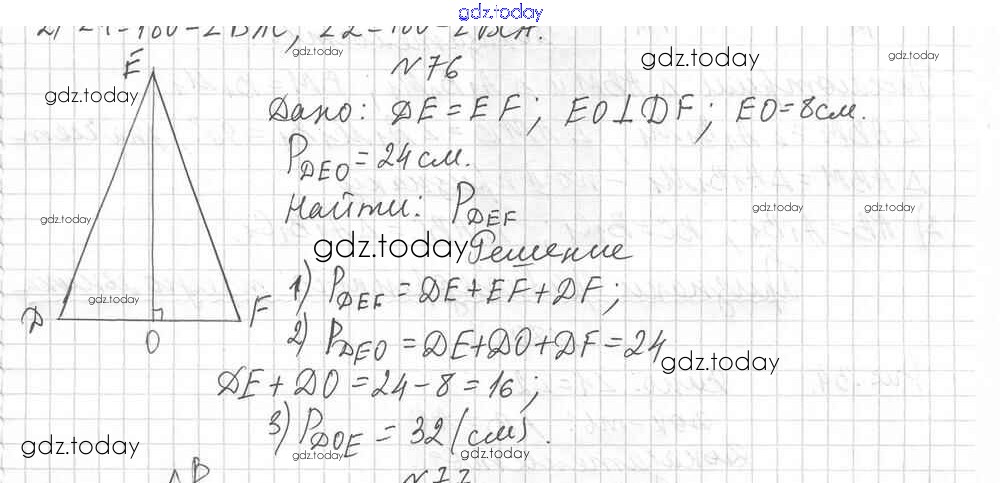 gdz.today
№76
Дано: DE = EF; EO⊥DF; EO = 8 см.
P DEO = 24 см.
Найти: P DEF
Решение
1) P DEF = DE + EF + DF;
2) P DEO = DE + DO + DF = 24
DE + DO = 24 - 8 = 16;
3) P DOE = 32 (см).
E
D
O
F
B
№77
gdz.today
gdz.today
gdz.today
gdz.today
gdz.today
gdz.today
gdz.today
gdz.today
gdz.today
gdz.today
gdz.today
gdz.today
gdz.today